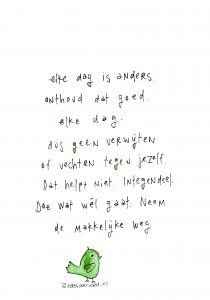 elke dag is anders.
onthoud dat goed.
elke dag.
dus geen verwijten
of vechten tegen jezelf.
Dat helpt niet. Integendeel.
Doe wat wél gaat. Neem
de makkelijke weg